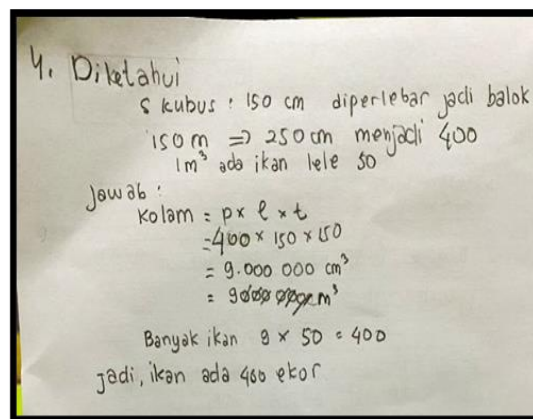 4. Diketahui
S kubus : 150 cm diperlebar jadi balok
150 m => 250 cm menjadi 400
1 m³ ada ikan lele 50
Jawab :
Kolam = p x l x t
= 400 x 150 x 150
= 9.000 000 cm³
= 9000 000 m³
Banyak ikan 9 x 50 = 400
Jadi, ikan ada 400 ekor